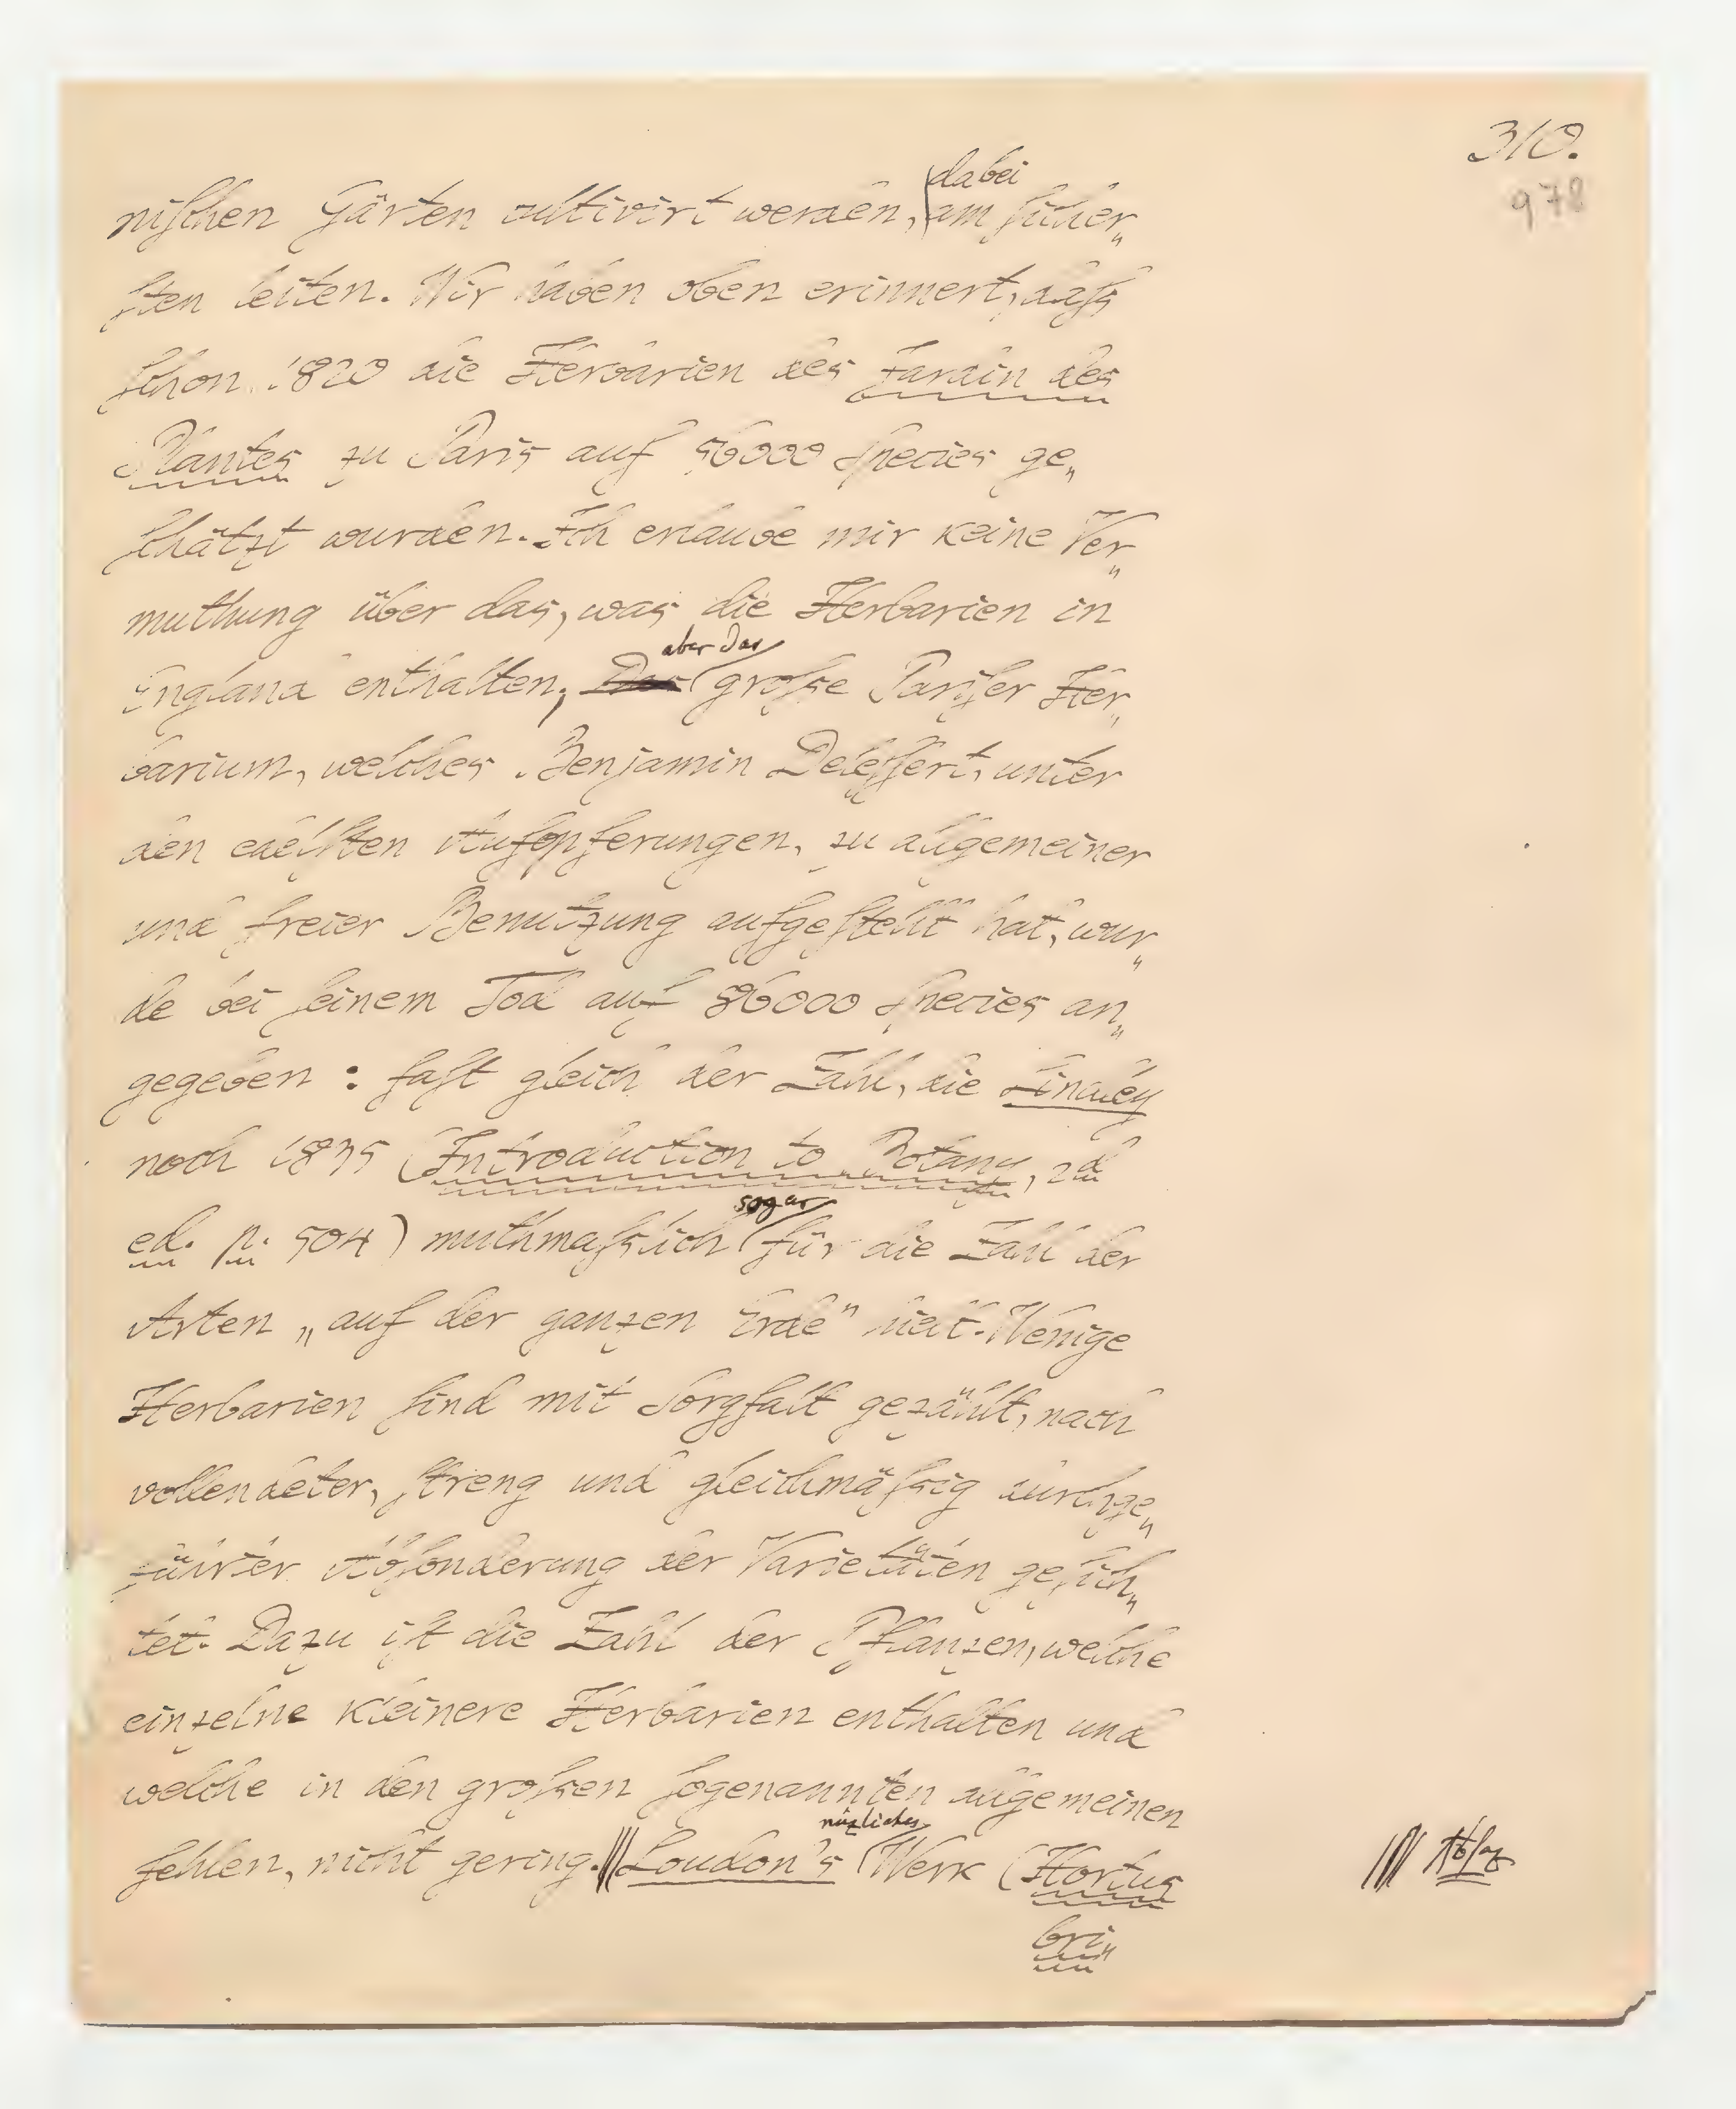 310.
978
dabei
niſchen Gärten cultivirt werden, am ſicher„
ſten leiten. Wir haben oben erinnert, daſs
ſchon 1820 die Herbarien des Jardin des
Plantes zu Paris auf 56000 Species ge„
ſchätzt wurden. Ich erlaube mir keine Ver„
muthung über das, was die Herbarien in
aber das
England enthalten; Das große Pariſer Her„
barium, welches Benjamin Deleſſert, unter
den edelſten Aufopferungen, zu allgemeiner
und freier Benutzung aufgeſtellt hat, wur„
de bei ſeinem Tod auf 86000 Species an„
gegeben: faſt gleich der Zahl, die Lindley
noch 1835 (Introduction to Botany, 2d
sogar
ed. p. 504) muthmaſslich für die Zahl der
Arten „auf der ganzen Erde" hielt. Wenige
Herbarien ſind mit Sorgfalt gezählt, nach
vollendeter, ſtreng und gleichmäſsig durchge„
führter Abſonderung der Varietäten geſich„
tet. Dazu iſt die Zahl der Pflanzen, welche
einzelne kleinere Herbarien enthalten und
welche in den groſsen ſogenannten allgemeinen
nüzliches
fehlen, nicht gering. Loudon's Werk (Hortus
Abſaz
bri„